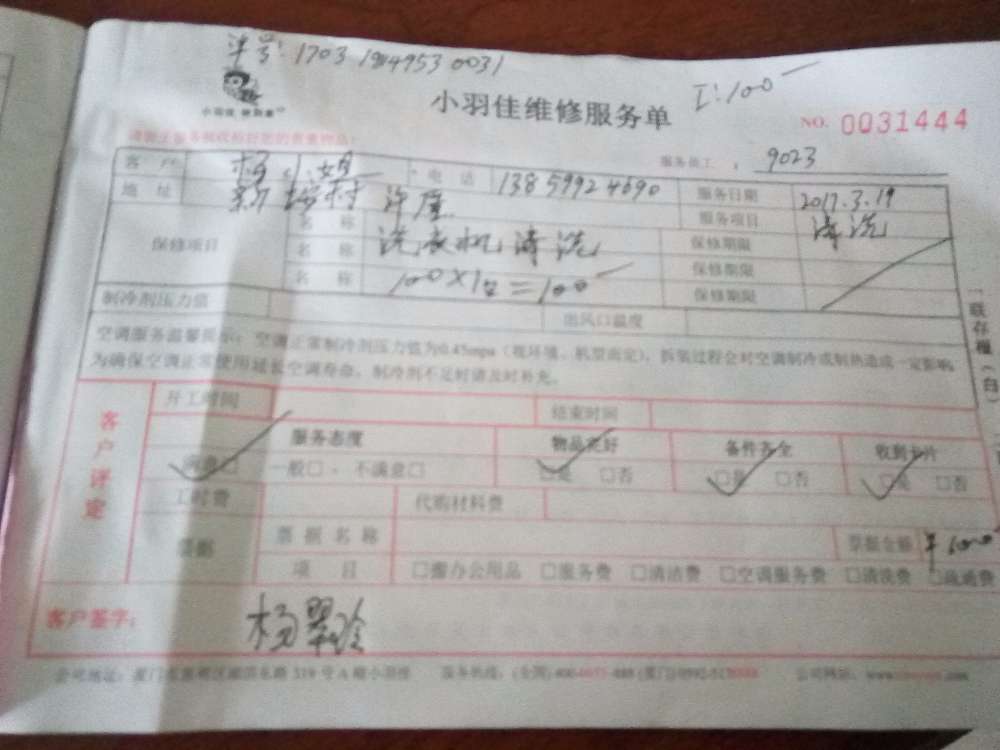 单号: 1703 1944953 0031
I: 100
小羽佳维修服务单
NO. 0031444
服务员工: 9023
客户 杨小姐 电话 13859924690 服务日期 2017.3.19
地址 服务项目 清洗
保修项目 名称 洗衣机清洗 保修期限
名称 保修期限
名称 100×1台=100 保修期限
制冷剂压力值 出风口温度
空调服务温馨提示: 空调正常制冷剂压力值为0.45mpa (视环境、机型而定), 拆装过程会对空调制冷或制热造成一定影响
为确保空调正常使用延长空调寿命, 制冷剂不足时请及时补充。
一联存根(白)
客户评定
开工时间 结束时间
服务态度 物品完好 备件齐全 收到卡片
满意□ 一般□ 不满意□ □是 □否 □是 □否 □是 □否
工时费 代购材料费
票据 票据名称 票据金额 ¥100
项目 □办公用品 □服务费 □清洁费 □空调服务费 □清洗费 □疏通费
客户签字: 杨翠玲
公司地址: 319号A幢小羽佳 服务热线: (全国) 400 (厦门) 0592 公司网站: www